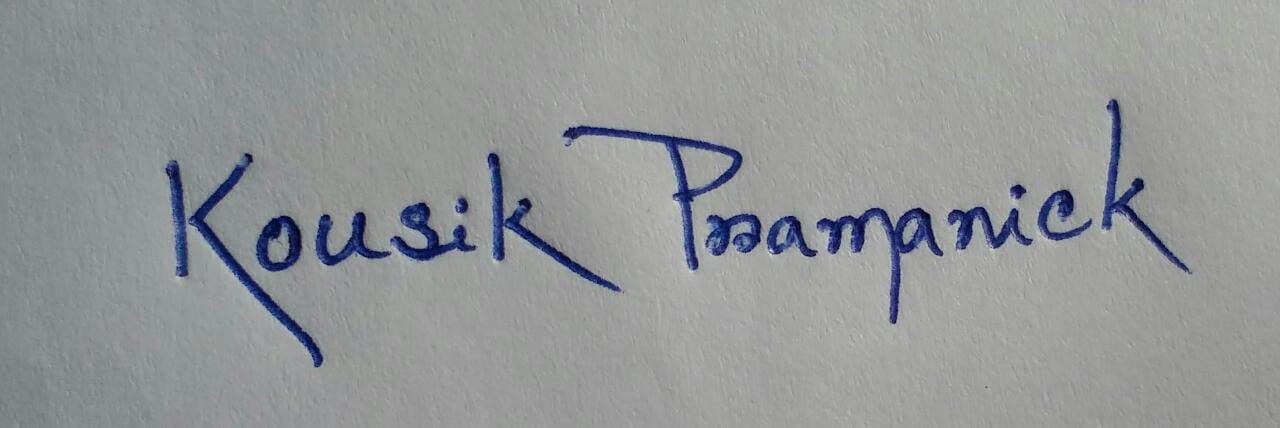 Kousik Pramanick